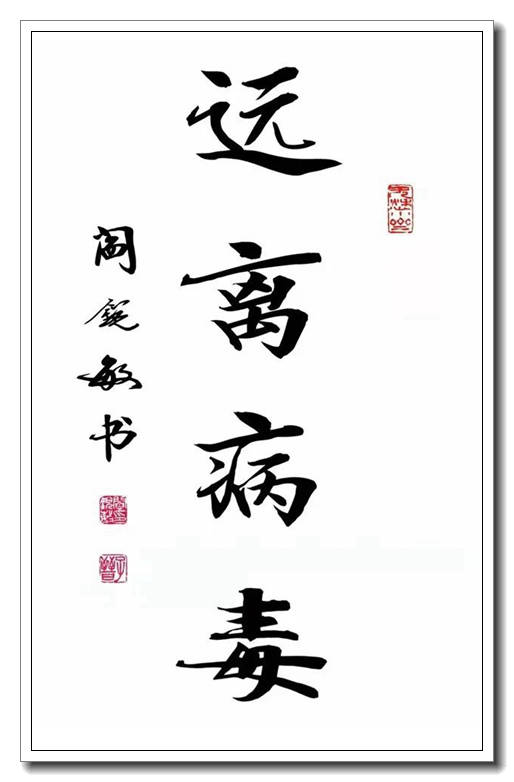 远离病毒
阎锐敏书